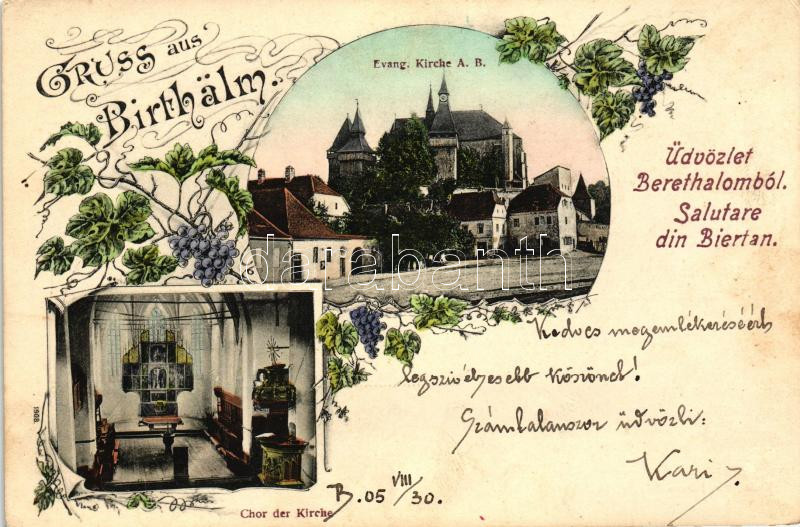 GRUSS aus
Birthälm.
Evang. Kirche A. B.
Üdvözlet
Berethalomból.
Salutare
din Biertan.
darabanth
Kedves megemlékezéséért
legszivélyesebb köszönet!
Számtalanszor üdvözli:
Kari
B. 05 VIII/30.
1908
Chor der Kirche